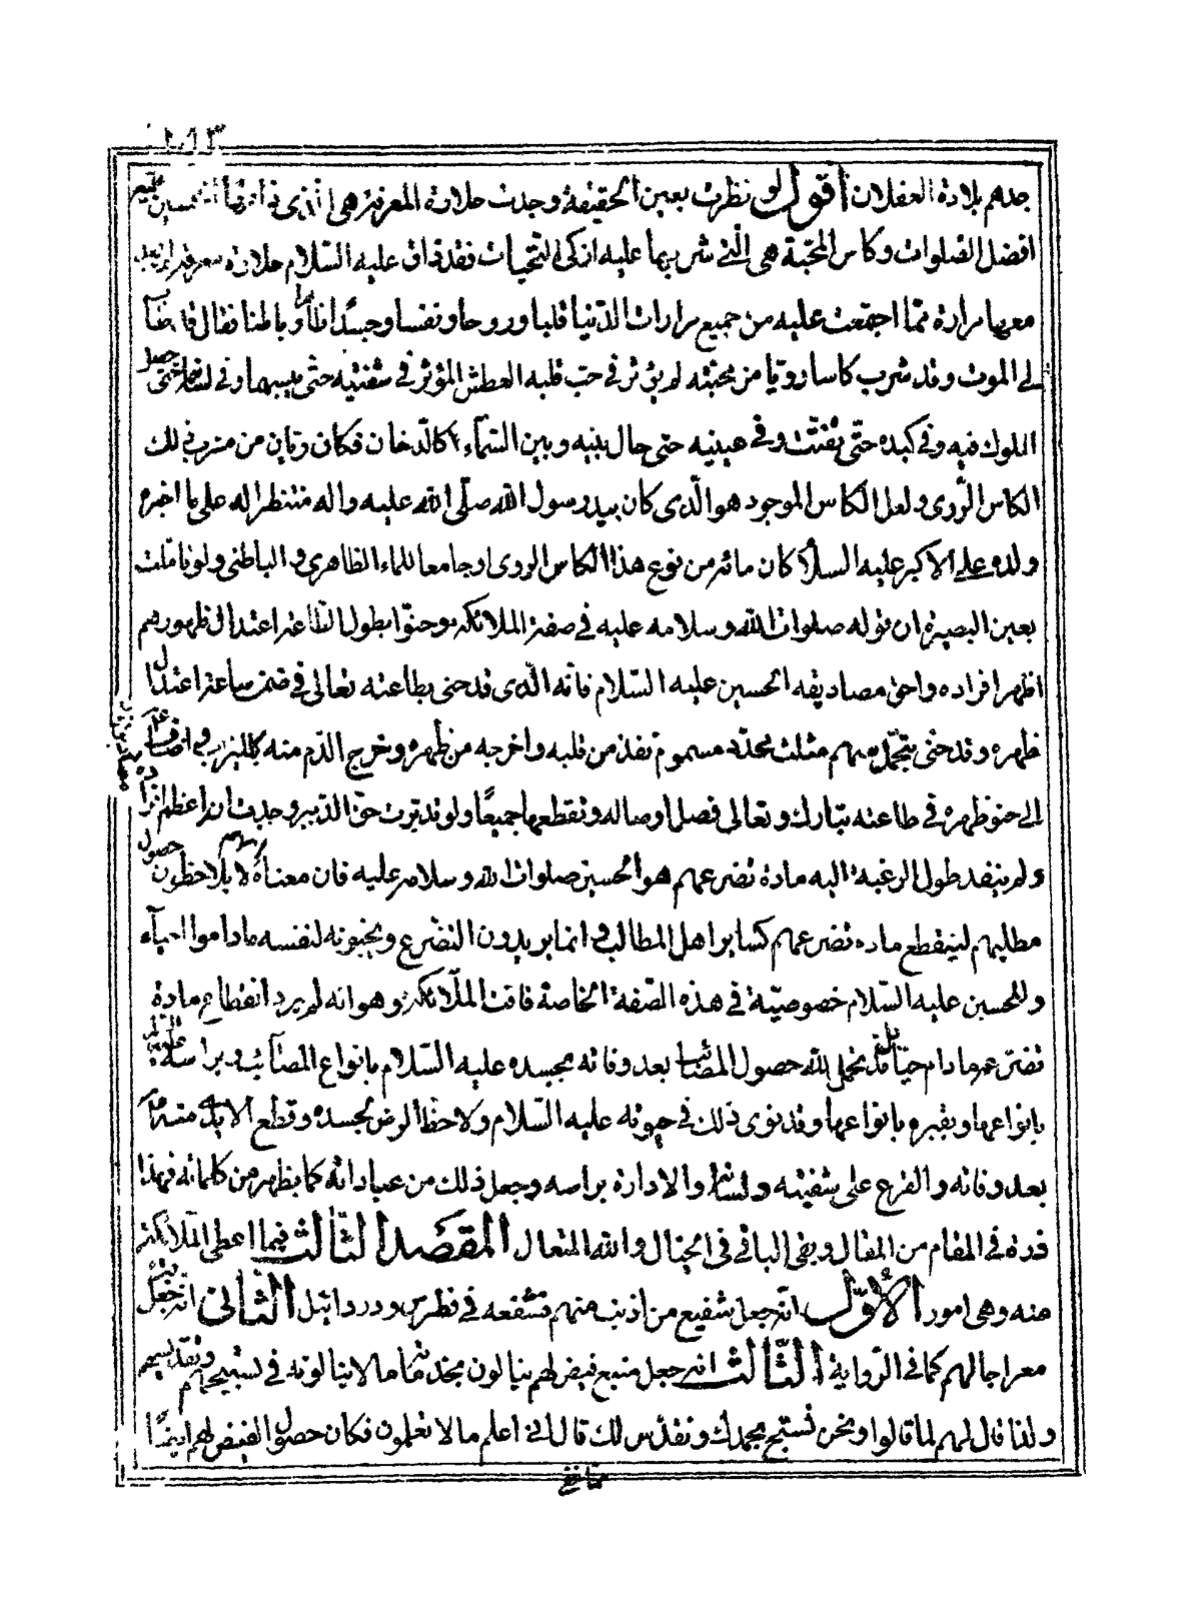 جدهم بلادة الغفلان أقول لو نظرت بعين الحقيقة وجدت حلاوة المعرفة هي الذي ذاقها الحسين عليه
افضل الصلوات وكاس المحبة هي الّتي شربها عليه ازكى التحيات فقد ذاق عليه السّلام حلاوة معرفة لم يبق
معها مرارة ممّا اجتمعت عليه من جميع مرارات الدّنيا قلبا وروحا ونفسا وجسدًا ظاهرا وباطنا فقال
لى الموت وقد شرب كاسا رويّا من محبّته لم يؤثر في حبّ قلبه العطش المؤثر في شفتيه حتّى يبسهما وفي لسانه حتى حصل
اللوك فيه وفي كبده حتّى تفتّت وفي عينيه حتى حال بينه وبين السّماء كالدّخان فكان وقان من شرب ذلك
الكاس الرّوى ولعل الكاس الموجود هو الّذى كان بيد رسول الله صلّى الله عليه واله منتظرا له على ما اخبره
ولده علي الاكبر عليه السلام كان مائه من نوع هذا الكاس الروى او جامعا للماء الظاهري والباطنى ولو تاملت
بعين البصيرة ان قوله صلوات الله وسلامه عليه في صفة الملائكة وحنوا بطول الطّاعة اعتدال ظهورهم
اظهر افراده واحق مصاديقه الحسين عليه السّلام فانه الّذى قد حنى بطاعته تعالى في ضمن ساعة اعتدال
ظهره وقد حنى بتحمّله سهم مثلث محدّد مسموم نفذ من قلبه واخرجه من ظهره وخرج الدّم منه كالميزاب
الى حنو ظهره في طاعته تبارك وتعالى فصل اوصاله وتقطعها جميعًا ولو تدبّرت حقّ التدبير وجدت ان اعظم افراد
ولم ينفد طول الرغبة اليه مادة تضرعهم هو الحسين صلوات الله وسلامه عليه فان معناه انهم لا يلاحظون حصول
مطلبهم لينقطع مادة تضرعهم كسائر اهل المطالب وانما يريدون التضرع ويحبونه لنفسه ماداموا احياء
وللحسين عليه السّلام خصوصيّة في هذه الصّفة الخاصة فاقت الملائكة وهو انه لم يرد انقطاع مادة
تضرّعه مادام حيّا بل قد تحمل لله حصول المصائب بعد وفاته بجسده عليه السّلام بانواع المصائب وبراسه
بانواعها وبقبره بانواعها وقد نوى ذلك في حيوته عليه السّلام ولاحظ الرض لجسده وقطع الايدى
بعد وفاته والقرع على شفتيه ولسانه والادارة براسه وجعل ذلك من عباداته كما يظهر من كلماته فهذا
قدره في المقام من المقال وبقى الباقي في الجنال والله المتعال المقصد الثّالث فيما اعطى الملائكة
منه وهى امور الأوّل انه جعل شفيع من اذنب منهم فتشفعه في فطرس ودردائيل الثّاني انه جعل
معراجا لهم كما في الرّواية الثّالث انه جعل منبع فيض لهم ينالون بخدمته ما لا ينالونه في تسبيحهم وتقديسهم
ولذا قال لهم لما قالوا ونحن نسبّح بحمدك ونقدّس لك قال اني اعلم ما لا تعلمون فكان حصول الفيض لهم ايضًا